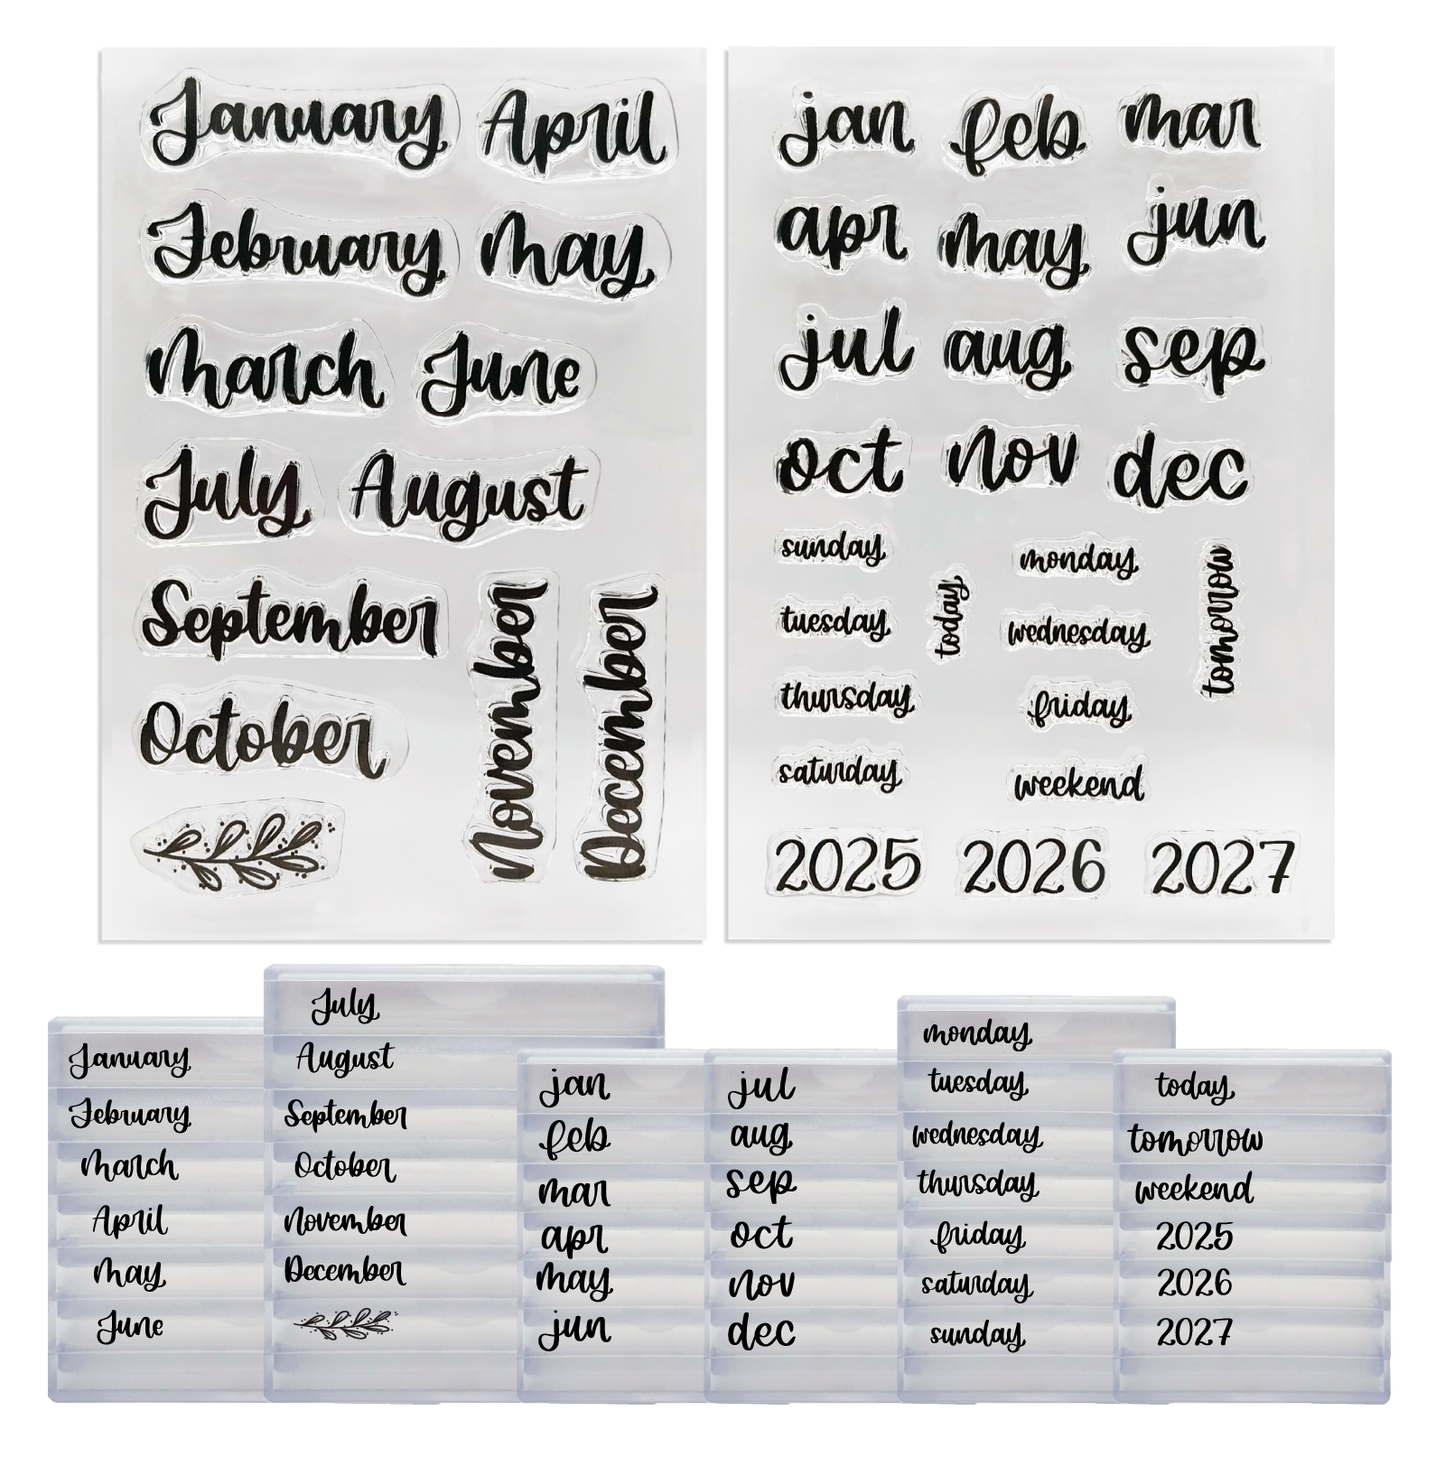 January April
February May
March June
July August
September
October
November
December
jan feb mar
apr may jun
jul aug sep
oct nov dec
sunday monday
tuesday today wednesday tomorrow
thursday friday
saturday weekend
2025 2026 2027
January
February
March
April
May
June
July
August
September
October
November
December
jan
feb
mar
apr
may
jun
jul
aug
sep
oct
nov
dec
monday
tuesday
wednesday
thursday
friday
saturday
sunday
today
tomorrow
weekend
2025
2026
2027